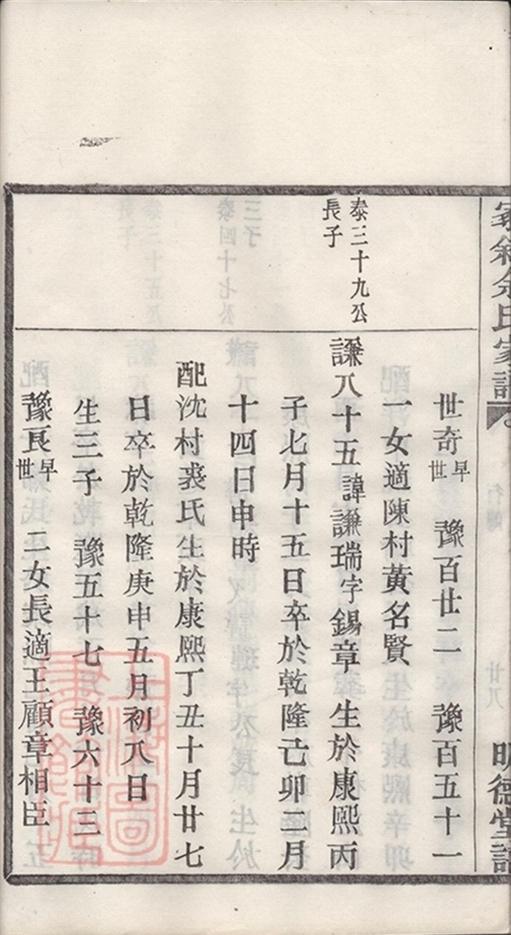 冢斜余氏家譜
明德堂譜
世奇早世 豫百廿二 豫百五十一
一女適陳村黃名賢
泰三十九公
長子
謙八十五諱謙瑞字錫章生於康熙丙
子七月十五日卒於乾隆己卯二月
十四日申時
配沈村裘氏生於康熙丁丑十月廿七
日卒於乾隆庚申五月初八日
生三子 豫五十七 豫六十三
豫良早世 二女長適王顧章相臣